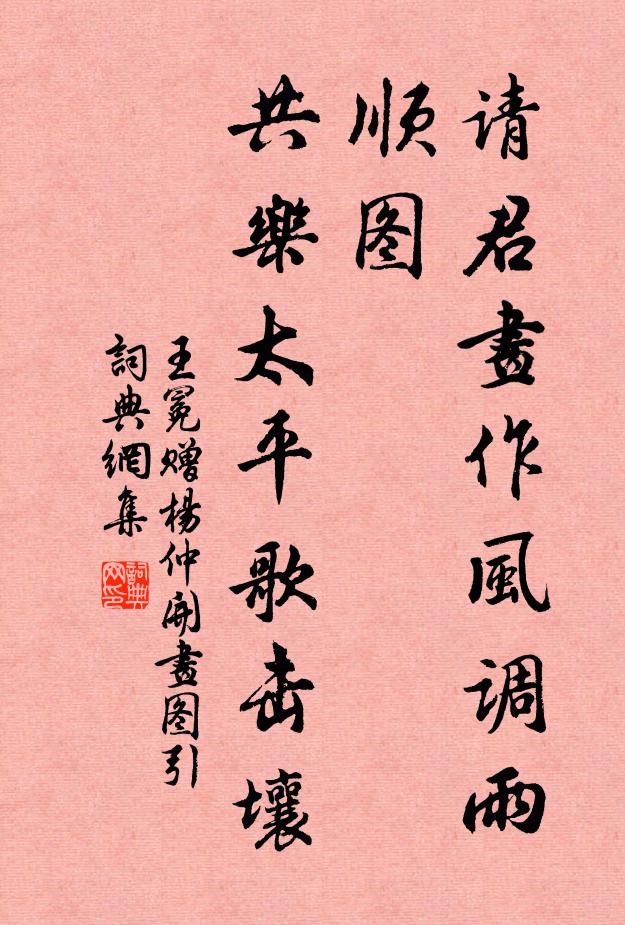 请君畫作風调雨
顺图
共樂太平歌击壤
王冕赠楊仲開畫图引
詞典網集
詞典网印